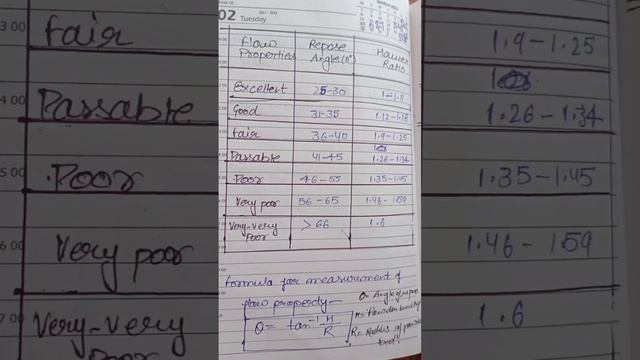 02 Tuesday
Flow Properties | Repose Angle(θ°) | Hausner Ratio
Excellent | 25-30 | 1-1.11
Good | 31-35 | 1.12-1.18
fair | 36-40 | 1.9-1.25
Passable | 41-45 | 1.26-1.34
Poor | 46-55 | 1.35-1.45
Very poor | 56-65 | 1.46-1.59
Very-Very Poor | >66 | 1.6
formula for measurement of
flow property-
θ = tan⁻¹ H/R
θ = Angle of repose
R = Radius of
fair
Passable
Poor
Very poor
Very-Very
1.9-1.25
1.26-1.34
1.35-1.45
1.46-1.59
1.6